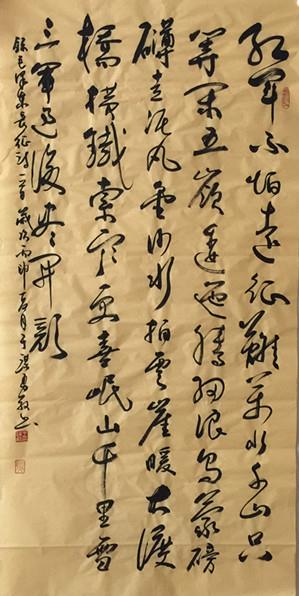 红军不怕远征难万水千山只
等闲五岭逶迤腾细浪乌蒙磅
礴走泥丸金沙水拍云崖暖大渡
桥横铁索寒更喜岷山千里雪
三军过后尽开颜
录毛泽东长征诗一首岁次丙申